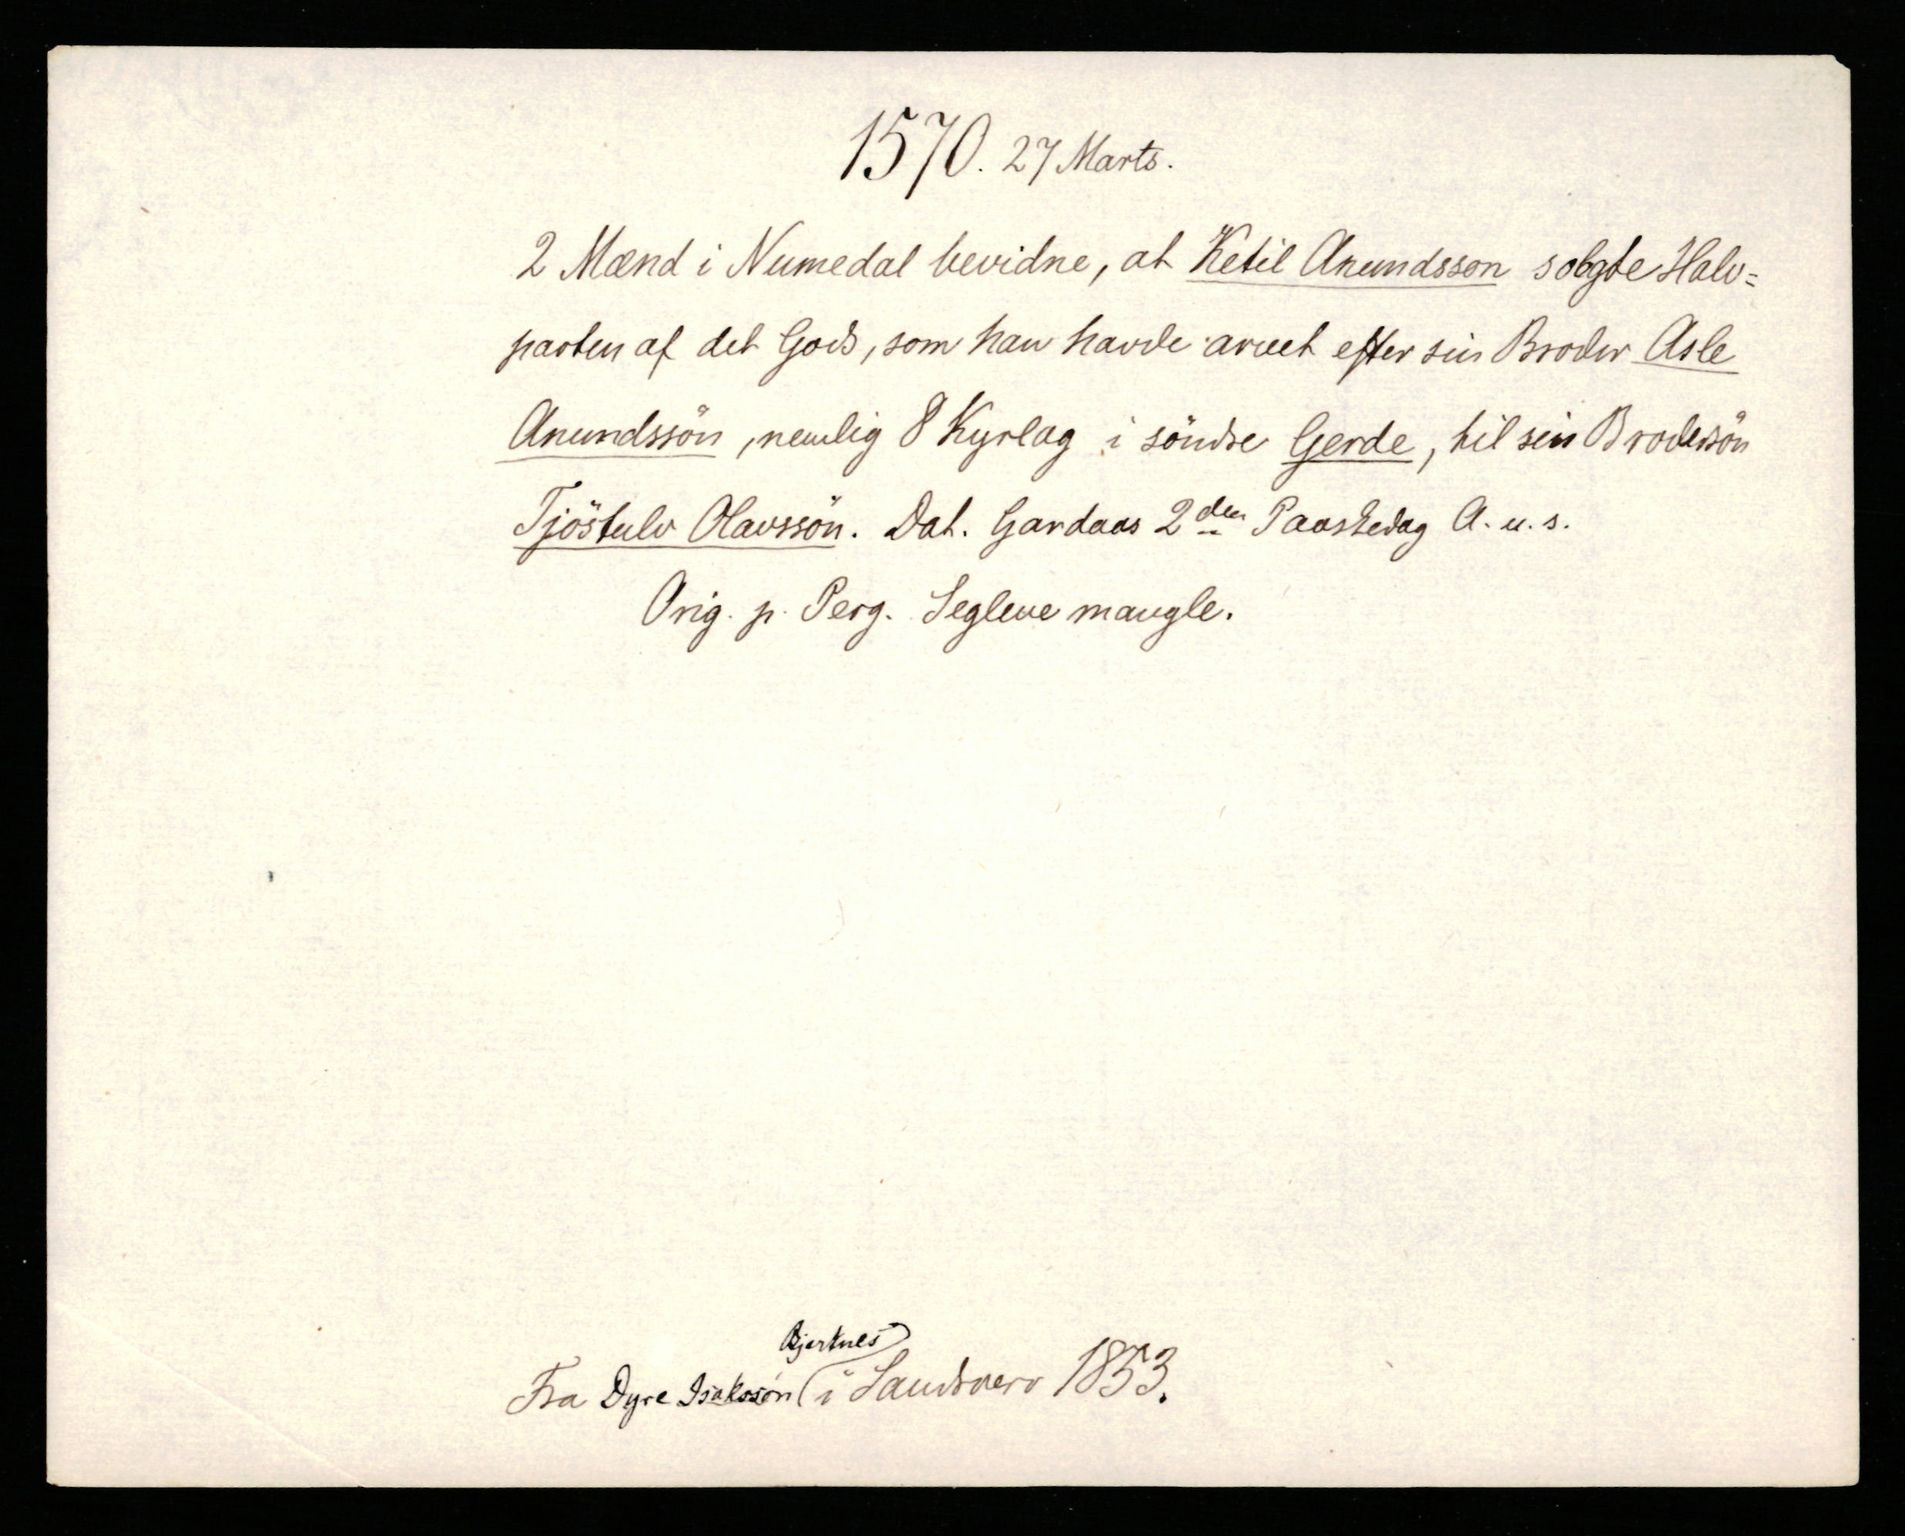 1570. 27 Marts.
2 Mænd i Numedal bevidne, at Ketil Anundsson solgte Halv=
parten af det Gods, som han havde arvet efter sin Broder Asle
Anundssön, nemlig 8 Kyrlag i söndre Gerde, til sin Brodersön
Tjöstulv Olavssön. Dat. Gardaas 2den Paaskedag A. u. s.
Orig. p. Perg. Seglene mangle.
Bjerknes
Fra Dyre Isakssön i Sandsverv 1853.